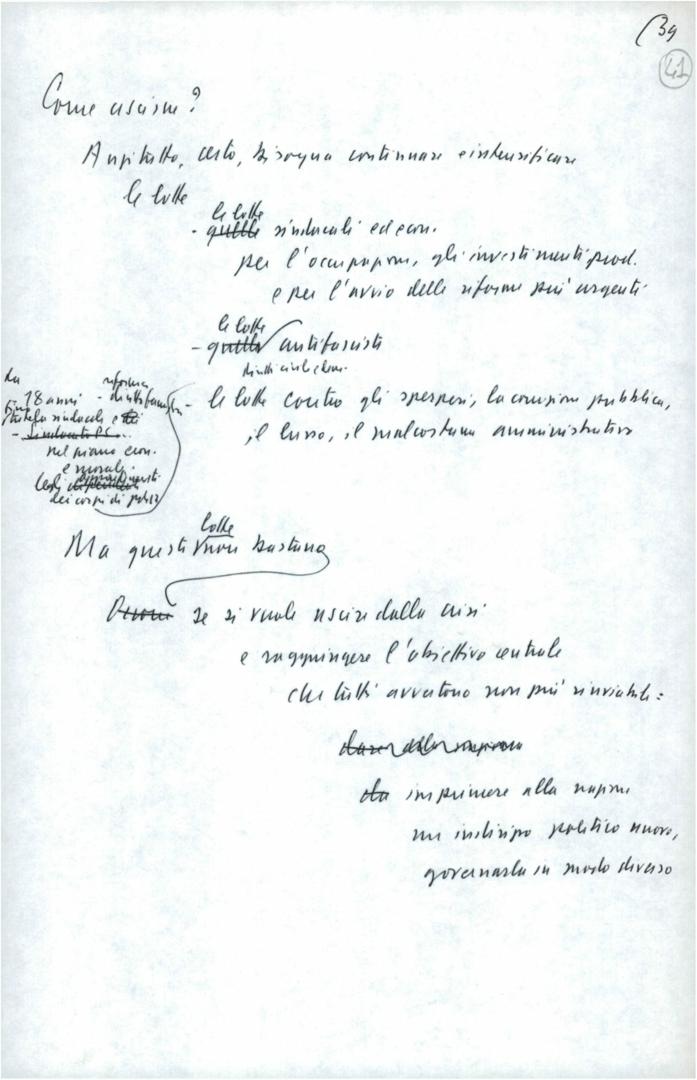 (39
41
Come uscirne?
Anzitutto, certo, bisogna continuare e intensificare
le lotte
le lotte
- quelle sindacali ed econ.
per l'occupazione, gli investimenti prod.
e per l'avvio delle riforme più urgenti
le lotte
- quelle antifasciste
diritti civili e dem.
- le lotte contro gli sperperi, la corruzione pubblica,
il lusso, il malcostume amministrativo
18 anni - riforma
diritto famiglia
tutela sindacale e
- sindacato P.S.
nel piano econ.
e morale
degli appartenenti
dei corpi di polizia
lotte
Ma questo non bastano
se si vuole uscire dalla crisi
e raggiungere l'obiettivo centrale
che tutti avvertono non più rinviabile:
dare alla nazione
da imprimere alla nazione
un indirizzo politico nuovo,
governarla in modo diverso